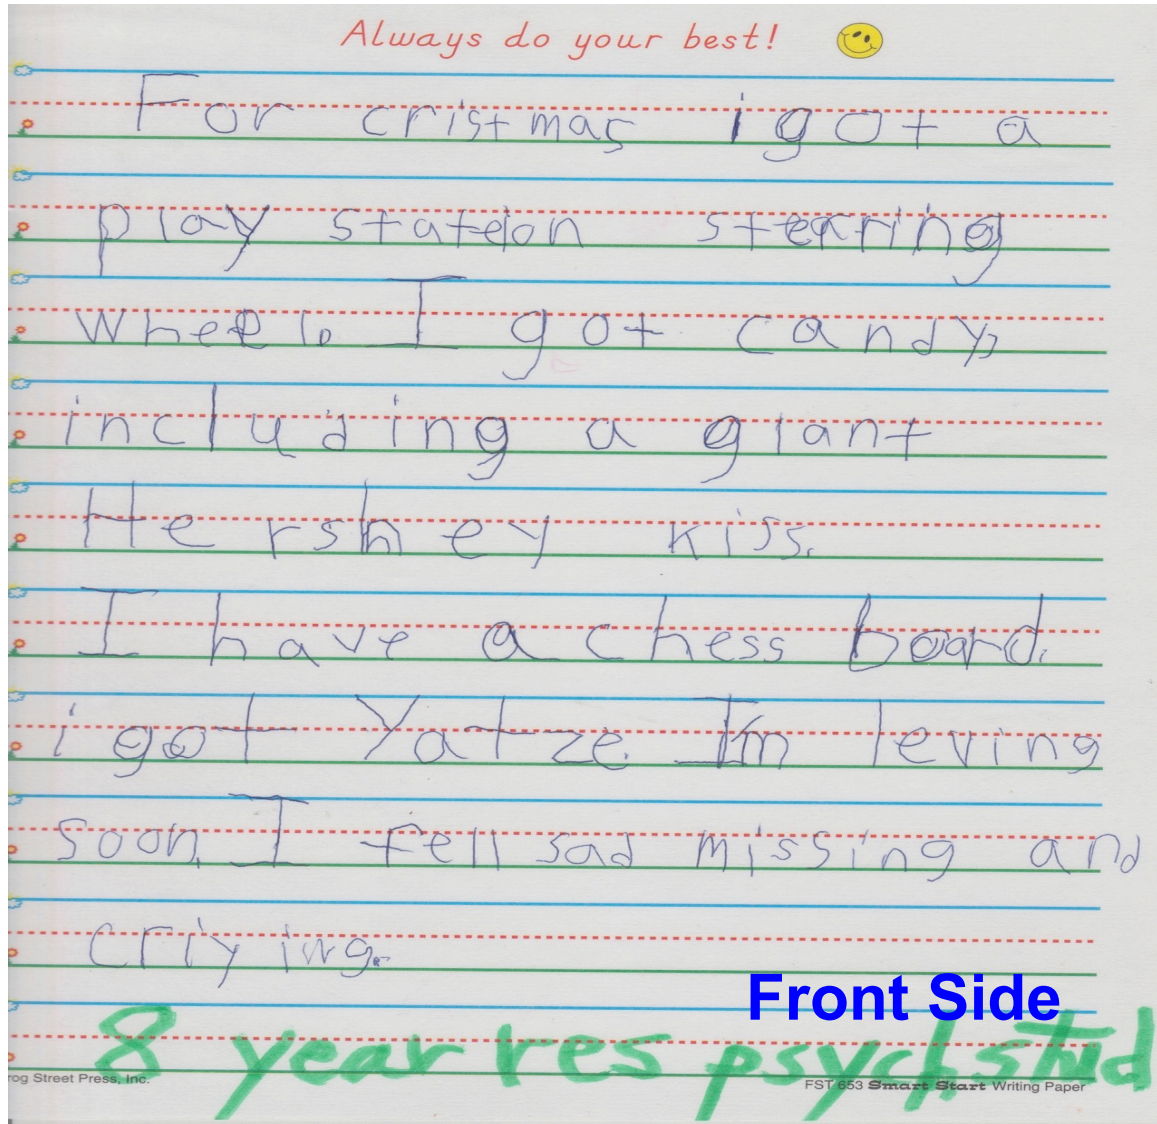 Always do your best!
For cristmas i got a
play station stearing
wheel. I got candy,
including a giant
Hershey kiss.
I have a chess board.
i got Yatze. Im leving
soon. I fell sad missing and
criy ing.
Front Side
8 year res psych stud
rog Street Press, Inc.
FST 653 Smart Start Writing Paper